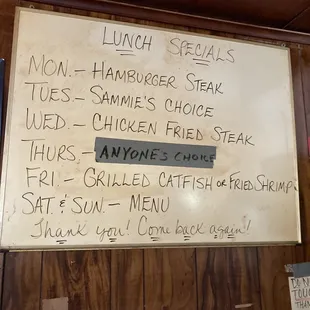 LUNCH SPECIALS
MON. - HAMBURGER STEAK
TUES. - SAMMIE'S CHOICE
WED. - CHICKEN FRIED STEAK
THURS. - ANYONE'S CHOICE
FRI - GRILLED CATFISH OR FRIED SHRIMP
SAT. & SUN. - MENU
Thank you! Come back again!
DO NOT
TOUCH